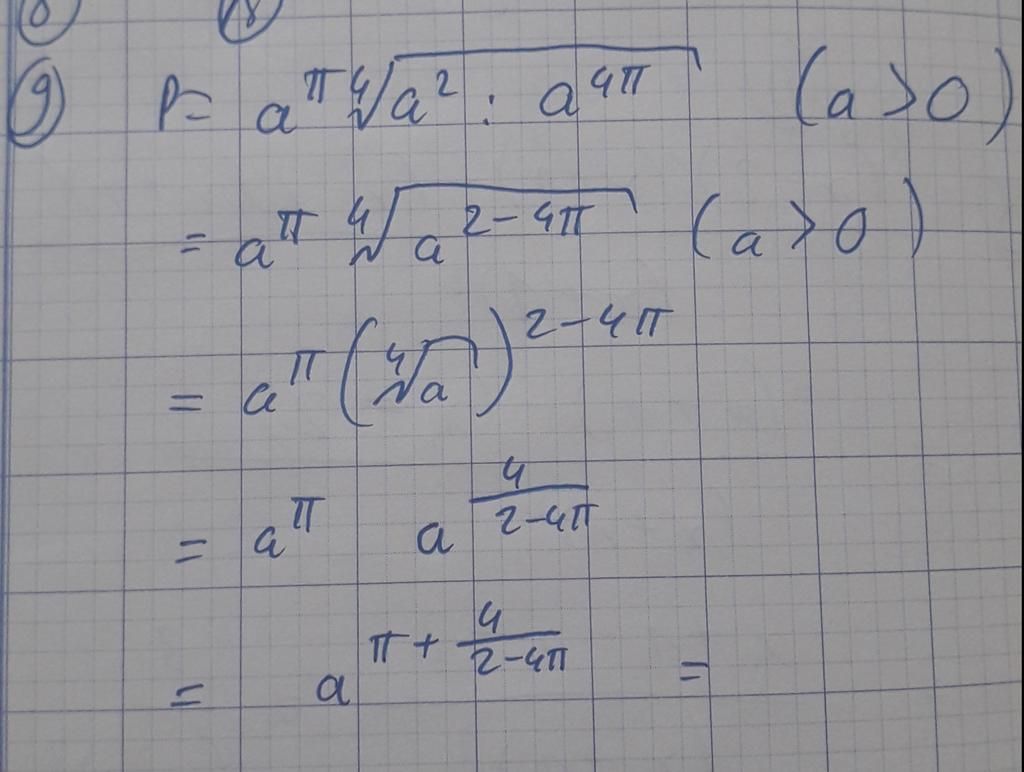 8) 18)
9) P = a^π ∜(a² : a^(4π)) (a > 0)
= a^π ∜(a^(2-4π)) (a > 0)
= a^π (∜a)^(2-4π)
= a^π a^(4/(2-4π))
= a^(π + 4/(2-4π)) =